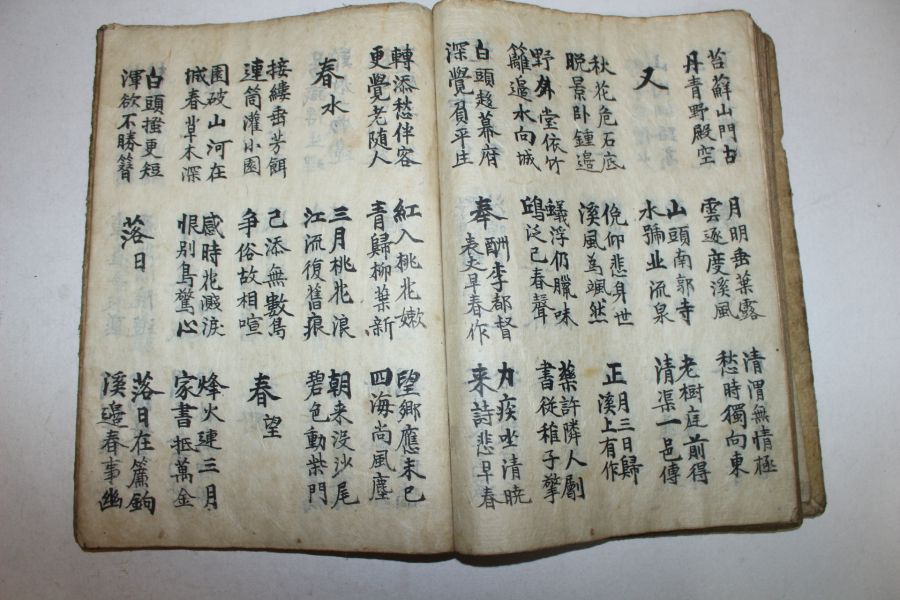 苔蘚山門古
丹青野殿空
月明垂葉露
雲逐度溪風
清渭無情極
愁時獨向東
又
山頭南郭寺
水號北流泉
老樹庭前得
清渠一邑傳
秋花危石底
脫景卧鍾邊
俛仰悲身世
溪風為颯然
正月三日歸
溪上有作
野外堂依竹
籬邊水向城
蟻浮仍臘味
鴟泛已春聲
藥許隣人劚
書從稚子擎
白頭趍幕府
深覺負平生
奉酬李都督
表丈早春作
力疾坐清曉
来詩悲早春
轉添愁伴客
更覺老随人
紅入桃花嫩
青歸柳葉新
望鄉應未已
四海尚風塵
春水
三月桃花浪
江流復舊痕
朝来没沙尾
碧色動柴門
接縷垂芳餌
連筒灌小園
已添無數鳥
爭俗故相喧
春望
國破山河在
城春草木深
感時花濺淚
恨别鳥驚心
烽火連三月
家書抵萬金
白頭搔更短
渾欲不勝簪
落日
落日在簾鉤
溪邊春事幽